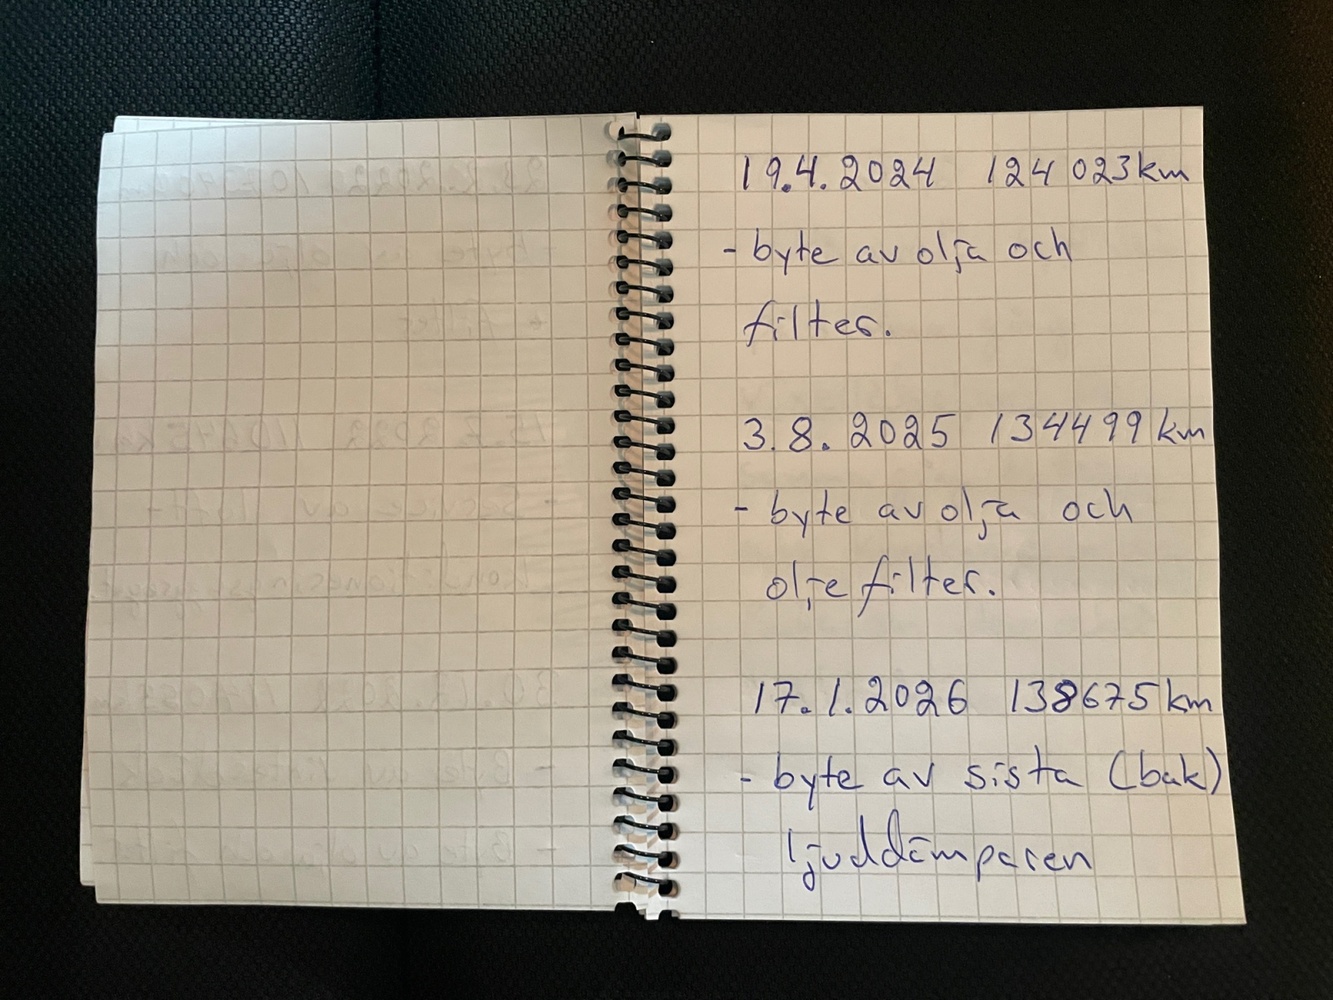 19.4.2024 124 023km
- byte av olja och
filter.
3.8.2025 134499km
- byte av olja och
olje filter.
17.1.2026 138675km
- byte av sista (bak)
ljuddämparen